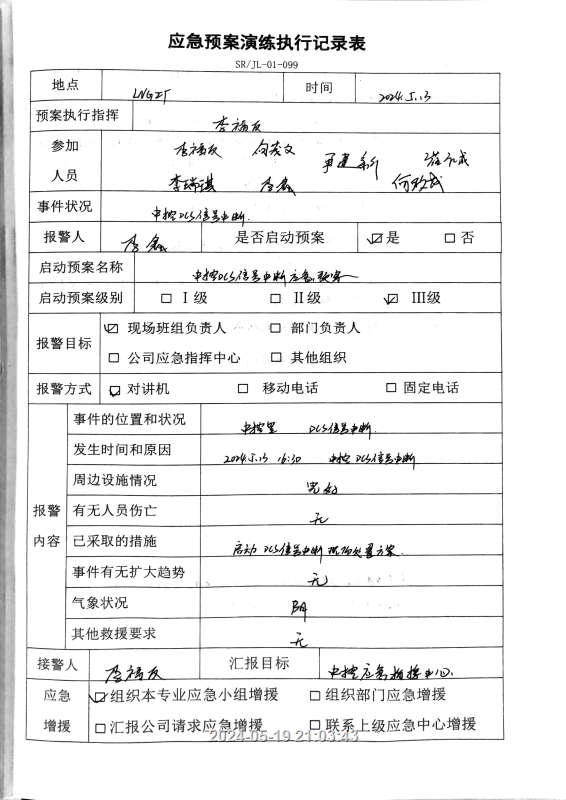 应急预案演练执行记录表
SR/JL-01-099
地点 LNG工厂 时间 2024.5.13
预案执行指挥 李福友
参加 李福友
人员 李瑞琪 李磊
事件状况 中控DCS信号中断.
报警人 李磊 是否启动预案 ☑是 □否
启动预案名称 中控DCS信号中断应急预案
启动预案级别 □ Ⅰ级 □ Ⅱ级 ☑ Ⅲ级
报警目标 ☑ 现场班组负责人 □ 部门负责人
□ 公司应急指挥中心 □ 其他组织
报警方式 ☑ 对讲机 □ 移动电话 □ 固定电话
报警内容
事件的位置和状况 中控室 DCS信号中断.
发生时间和原因 2024.5.13 16:30 中控DCS信号中断
周边设施情况 完好
有无人员伤亡 无
已采取的措施 启动DCS信号中断现场处置方案.
事件有无扩大趋势 无
气象状况 阴
其他救援要求 无
接警人 李福友 汇报目标 中控应急指挥中心.
应急 ☑组织本专业应急小组增援 □组织部门应急增援
增援 □汇报公司请求应急增援 □联系上级应急中心增援
2024-05-19 21:03:43